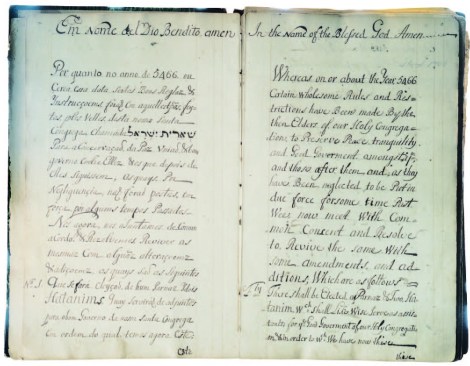 Em Nome del Dio Bendito, amen
Por quanto no anno de 5466, ou
Cerca com esta
Restrincoems
tos pellos Velhos desta nossa Santa
Congrega Chamada שארית ישראל
Para a Conservaçaõ da Paz
governo entre Elles & os que depois de
elles Seguissem, as quaes Por
Negligencia
força por algums tempos Passados
Nos agora nos ajuntamos de Comum
acordo & Resolvemos Reviver as
mesmas Com algũas alteraçoems
& adiçoems, as quays saõ as siguintes
No. 1 Que se fara
Hatanims
para o bom Governo de nossa Santa Congrega
em ordem do qual temos agora Este
Este
In the Name of the Blessed God Amen
Whereas on or about the Year 5466
Certain wholesome Rules and Res-
trictions have been Made By the
then Elders of our Holy Congrega-
tion, to Preserve Peace, tranquility
and Good Goverment amongst
and those after them and, as they
have Been neglected to be Put in
due force for some time Past
Wee now meet With Com
mon Consent and Resolve
to Revive the Same With
some amendments, and ad
ditions, Which are as follows
There shall be Elected a Parnaz & two Ha-
tanim, Wch. shall Like Wise Serve as assis-
tants, for ye. Good Goverment of our Holy Congregation
and in order to Wt. We have now
these